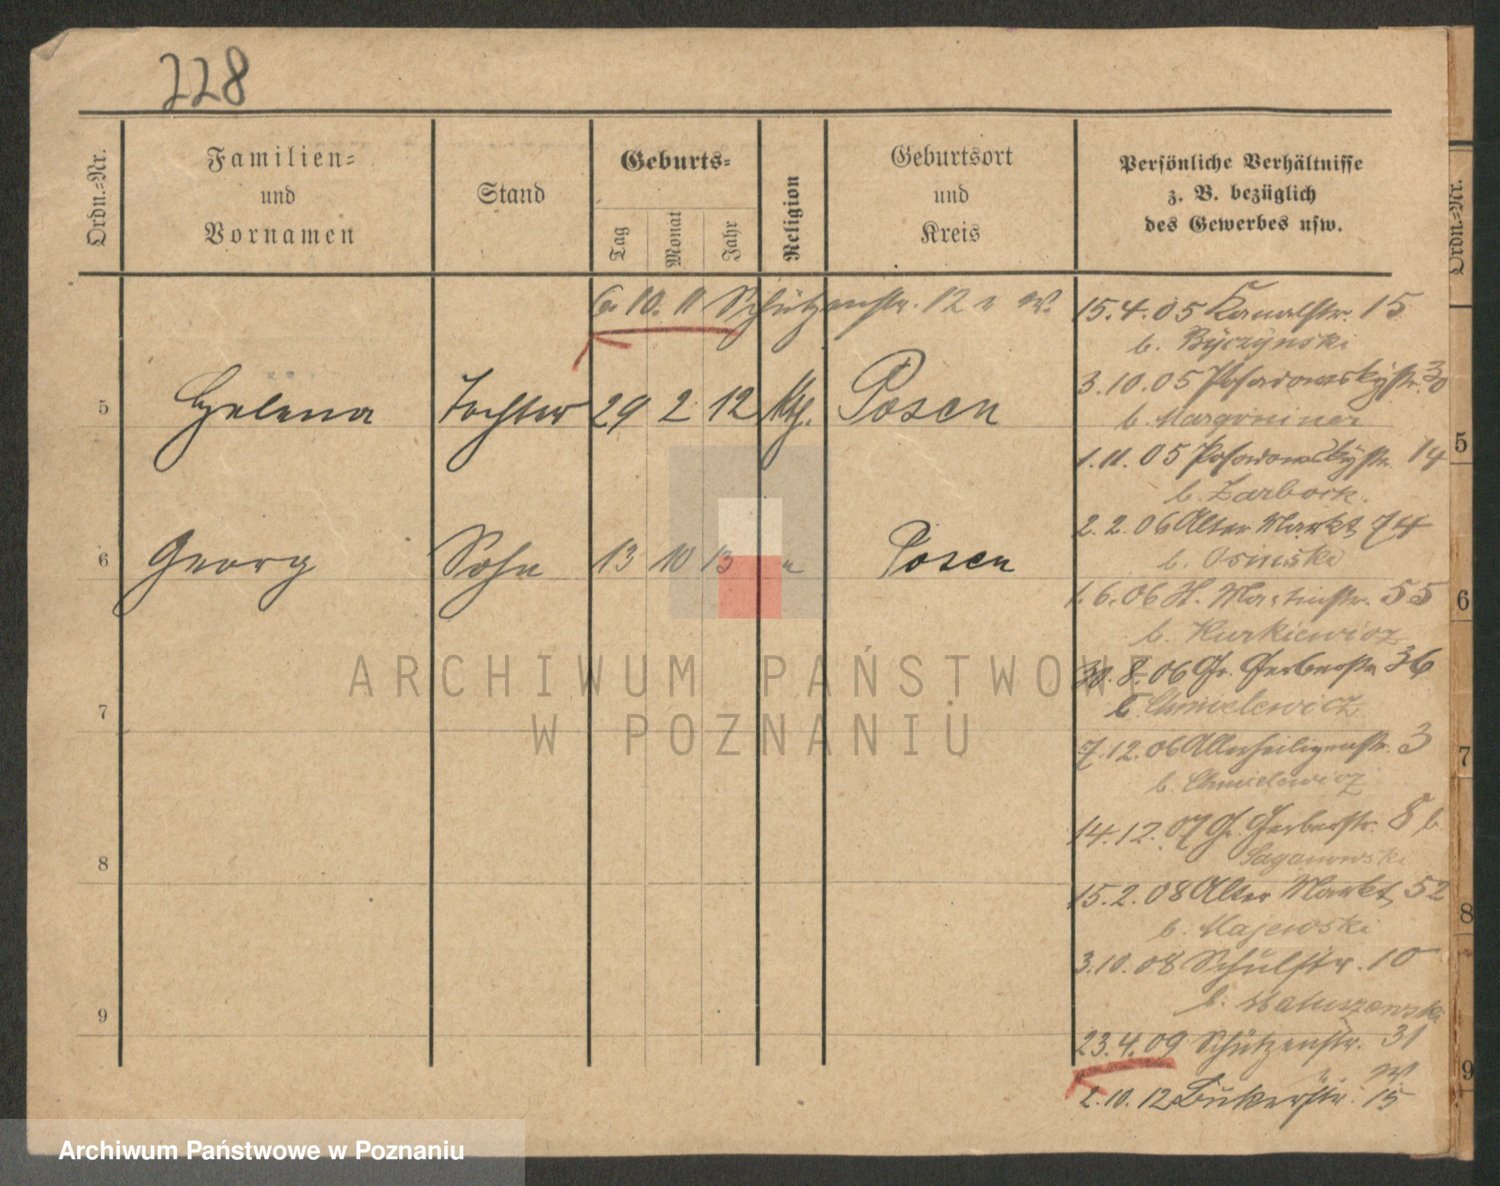 228
Ordn.=Nr.
Familien=
und
Vornamen
Stand
Geburts=
Tag
Monat
Jahr
Religion
Geburtsort
und
Kreis
Persönliche Verhältnisse
z. B. bezüglich
des Gewerbes usw.
Ordn.=Nr.
6. 10. 11 Schützenstr. 12 W.
5 Helena Tochter 29 2 12 Kth. Posen
6 Georg Sohn 13 10 13 " Posen
7
8
9
15.4.05 Kanalstr. 15
b. Byczynski
3.10.05 Posadowskystr. 30
b. Margoniner
1.11.05 Posadowskystr. 14
b. Zarbock.
2.2.06 Alter Markt 74
b. Osinski
1.6.06 St. Martinstr. 55
b. Kurkiewicz
30.8.06 Gr. Gerberstr. 36
b. Chmielewicz
7.12.06 Allerheiligenstr. 3
b. Chmielewicz
14.12.07 Gr. Gerberstr. 8
b. Saganowski
15.2.08 Alter Markt 52
b. Majewski
3.10.08 Schulstr. 10
b. Matuszewski
23.4.09 Schützenstr. 31
W.
2.10.12 Bukerstr. 15
5
6
7
8
9
ARCHIWUM PAŃSTWOWE
W POZNANIU
Archiwum Państwowe w Poznaniu